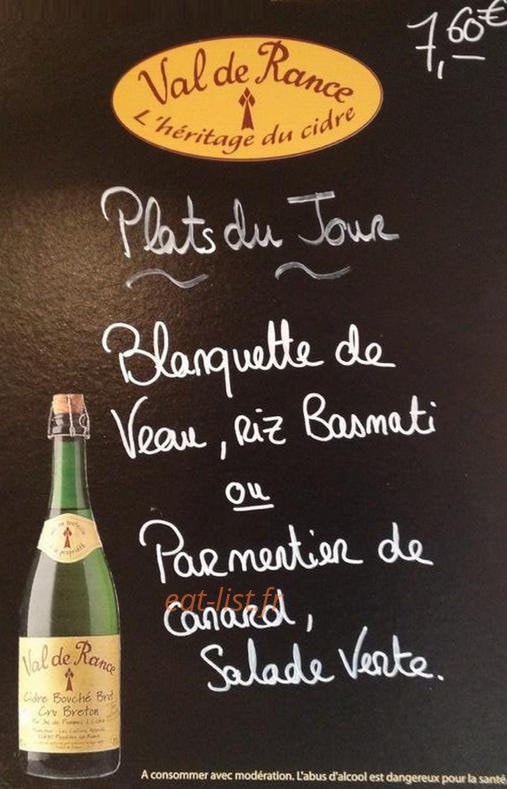 7,60€
Val de Rance
L'héritage du cidre
Plats du Jour
Blanquette de
Veau, Riz Basmati
ou
Parmentier de
Canard,
eat-list.fr
Salade Verte.
Val de Rance
Cidre Bouché Brut
Cru Breton
A consommer avec modération. L'abus d'alcool est dangereux pour la santé